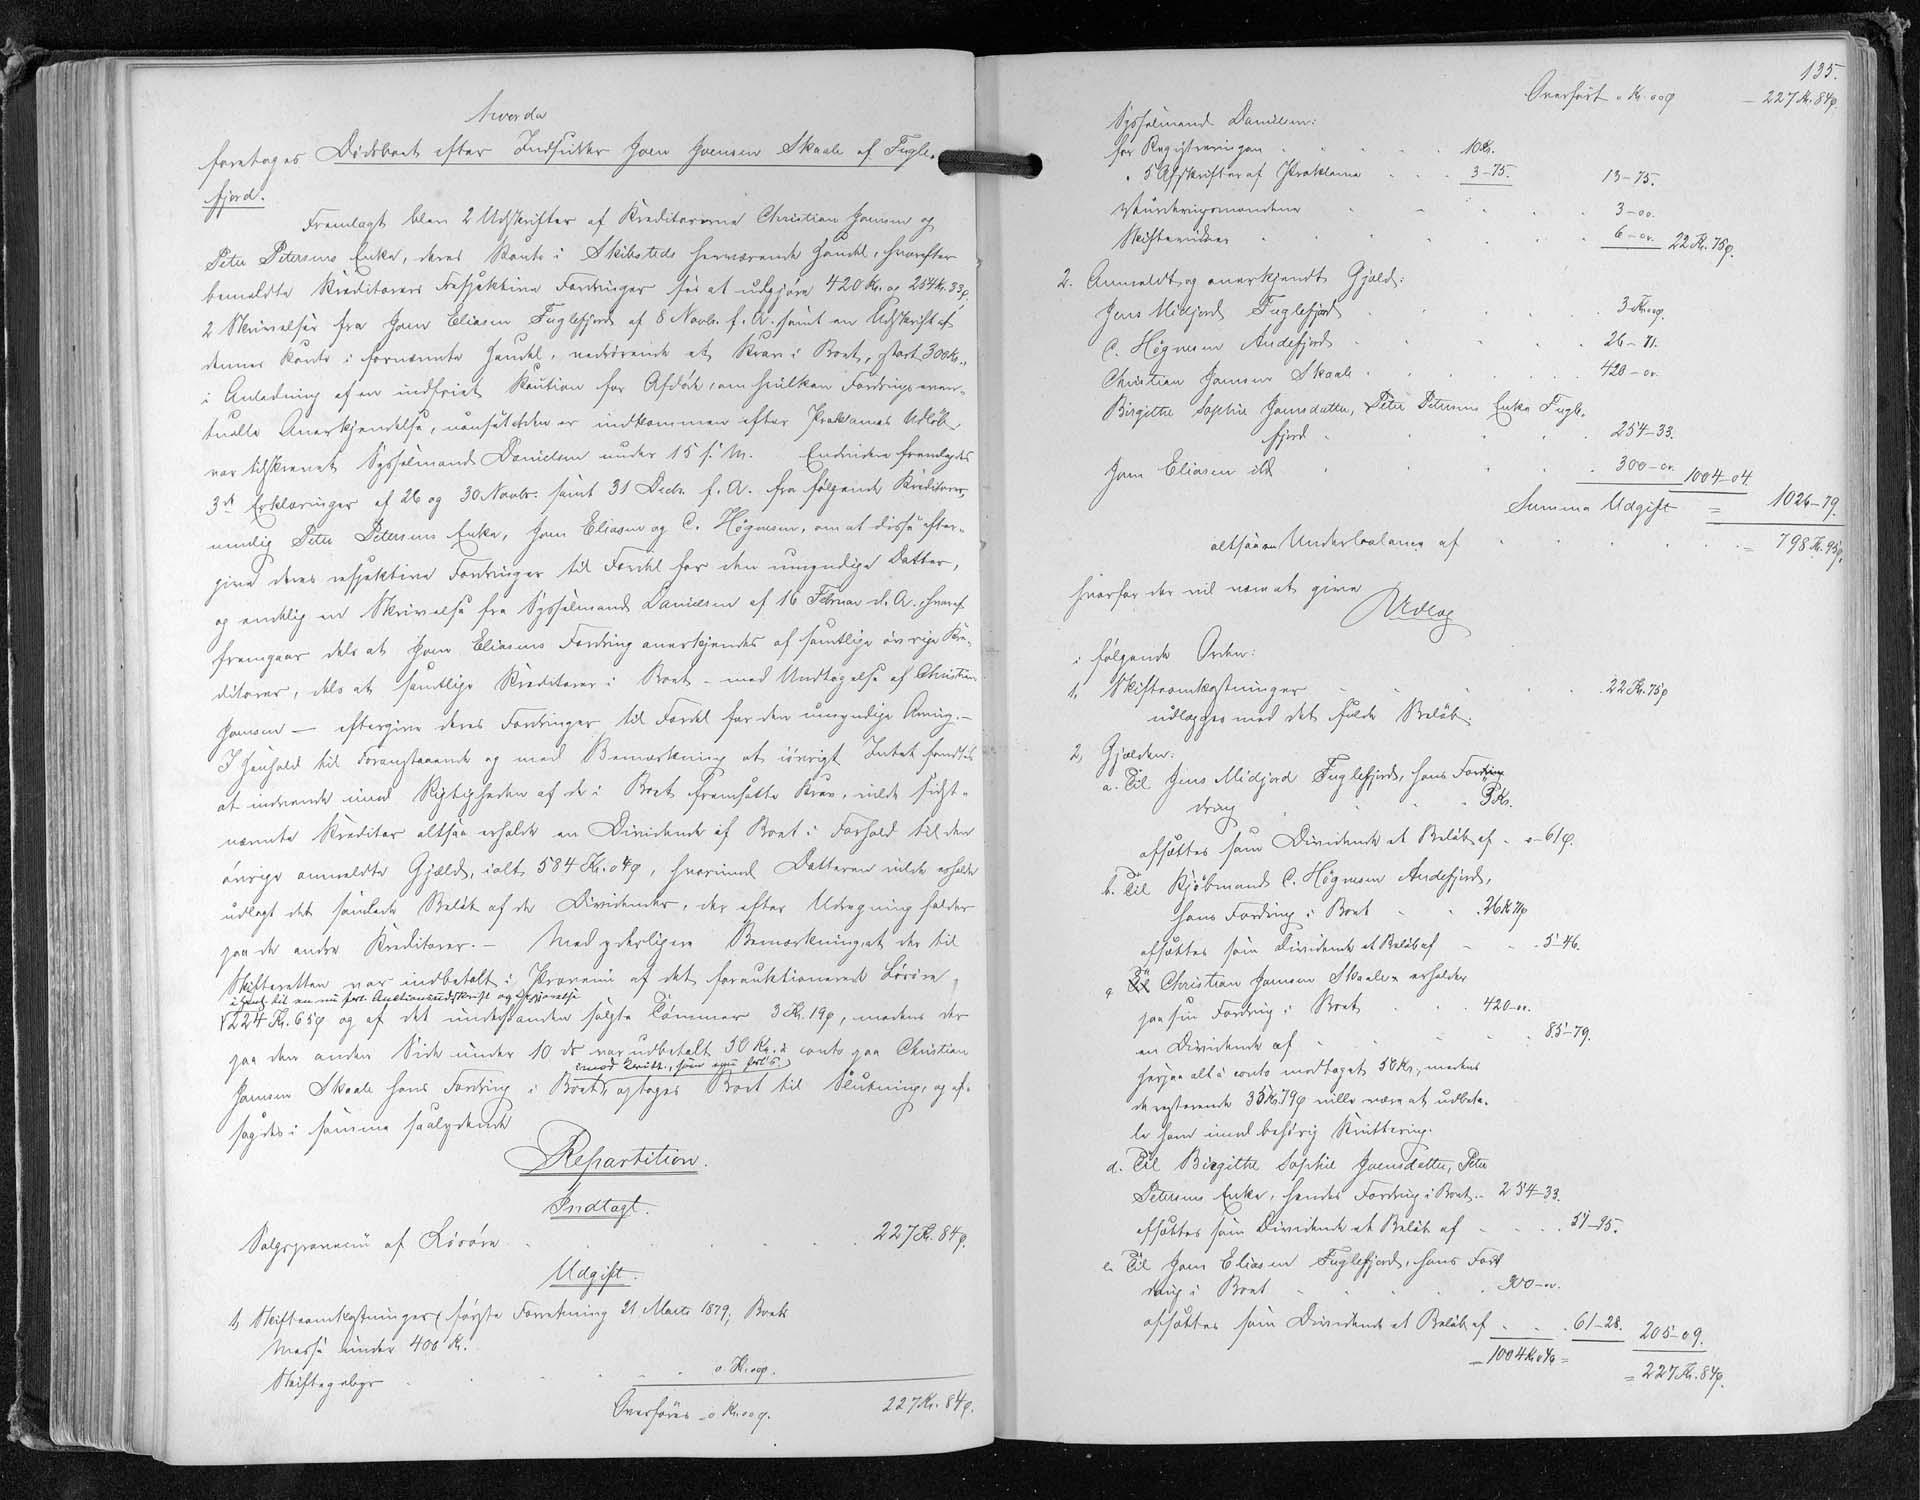 hvorda
foretoges Dödsboet efter Indsidder Joen Joensen Skaale af Fugle-
fjord.
Fremlagt blev 2 Udskrifter af Kreditorerne Christian Joensen og
Peter Petersens Enke, deres Konto i Skibsteds herværende Handel, hvorefter
bemeldte Kreditorers respektive Fordringer sees at udgjöre 420 Kr. og 254 Kr. 33 ø,
2 Skrivelser fra Joen Eliasen Fuglefjord af 8 Novb. f. A. samt en Udskrift af
dennes Konto i fornævnte Handel, vedrörende et Krav i Boet, stort 300 Kr.,
i Anledning af en indfriet Kaution for Afdöde, om hvilken Fordrings even-
tuelle Anerkjendelse, uanset den er indkommen efter Proklamas Udlöb,
var tilskrevet Sysselmand Danielsen under 15 f. M. Endvidere fremlagdes
3de Erklæringer af 26 og 30 Novbr. samt 31 Decbr. f. A. fra følgende Kreditorer,
nemlig Peter Petersens Enke, Joen Eliasen og C. Høgnesen, om at disse efter-
give deres respektive Fordringer til Fordel for den umyndige Datter,
og endelig en Skrivelse fra Sysselmand Danielsen af 16 Februar d. A., hvoraf
fremgaar dels at Joen Eliasens Fordring anerkjendes af samtlige øvrige Kre-
ditorer, dels at samtlige Kreditorer i Boet – med Undtagelse af Christian
Joensen – eftergive deres Fordringer til Fordel for den umyndige Arving. –
I Henhold til Foranstaaende og med Bemærkning at iövrigt Intet fandtes
at indvende imod Rigtigheden af de i Boet fremsatte Krav, vilde sidst-
nævnte Kreditor altsaa erholde en Dividende af Boet i Forhold til den
övrige anmeldte Gjæld, ialt 584 Kr. 04 ø, hvorimod Datteren vilde erholde
udlagt det samlede Beløb af de Dividender, der efter Udregning falder
paa de andre Kreditorer. – Med yderligere Bemærkning, at der til
Skifteretten var indbetalt i Provenu af det forauktionerede Lösöre
i Henh. til en nu fort. Auctionsudskrift og Opgjörelse
224 Kr. 65 ø og af det underhaanden solgte Tömmer 3 Kr. 19 ø, medens der
paa den anden Side under 10 ds var udbetalt 50 Kr. à conto paa Christian
mod Kvitt., som nu fort.
Joensen Skaale hans Fordring i Boet, optoges Boet til Slutning, og af-
sagdes i samme saalydende
Repartition.
Indtægt.
Salgsprovenu af Lösöre . . . . . 227 Kr. 84 ø.
Udgift.
1, Skifteomkostninger (første Forretning 21 Marts 1879; Boets
Masse under 400 Kr.
Skiftegebyr . . . . . 0 Kr. 00 ø.
Overföres 0 Kr. 00 ø. 227 Kr. 84 ø.
135.
Overfört 0 Kr. 00 ø – 227 Kr. 84 ø.
Sysselmand Danielsen:
for Registreringen . . . . . 10 Kr.
" 5 Afskrifter af Proklama . . . 3–75. 13–75.
Vurderingsmændene . . . . . 3–00.
Skiftevidner . . . . . 6–00. 22 Kr. 75 ø.
2. Anmeldt og anerkjendt Gjæld:
Jens Midjord Fuglefjord . . . . . 3 Kr. 00 ø.
C. Høgnesen Andefjord . . . . . 26–71.
Christian Joensen Skaale . . . . . 420–00.
Birgithe Sophie Joensdatter, Peter Petersens Enke Fugle-
fjord . . . . . 254–33.
Joen Eliasen ibd . . . . . 300–00. 1004–04.
Summa Udgift = 1026–79.
altsaa en Underbalance af . . . . . = 798 Kr. 95 ø.
hvorfor der vil være at give
Udlæg
i følgende Orden:
1, Skifteomkostninger . . . . . 22 Kr. 75 ø
udlægges med det fulde Beløb.
2, Gjælden:
a. Til Jens Midjord Fuglefjord, hans For-
dring . . . . 3 Kr.
afsættes som Dividende et Beløb af . 0–61 ø.
b. Til Kjöbmand C. Høgnesen Andefjord,
hans Fordring i Boet . . 26 Kr 71 ø
afsættes som Dividende et Beløb af . . 5–46.
c. Christian Joensen Skaale erholder
paa sin Fordring i Boet . . 420–00.
en Dividende af . . . . . 85–79.
herpaa alt à conto modtaget 50 Kr., medens
de resterende 35 Kr. 79 ø ville være at udbeta-
le ham imod behörig Kvittering.
d. Til Birgithe Sophie Joensdatter, Peter
Petersens Enke, hendes Fordring i Boet . 254–33.
afsættes som Dividende et Beløb af . . . 51–95.
e. Til Joen Eliasen Fuglefjord, hans For-
dring i Boet . . . . . 300–00.
afsættes som Dividende et Beløb af . . . 61–28. 205–09.
= 1004 Kr. 04 ø = = 227 Kr. 84 ø.